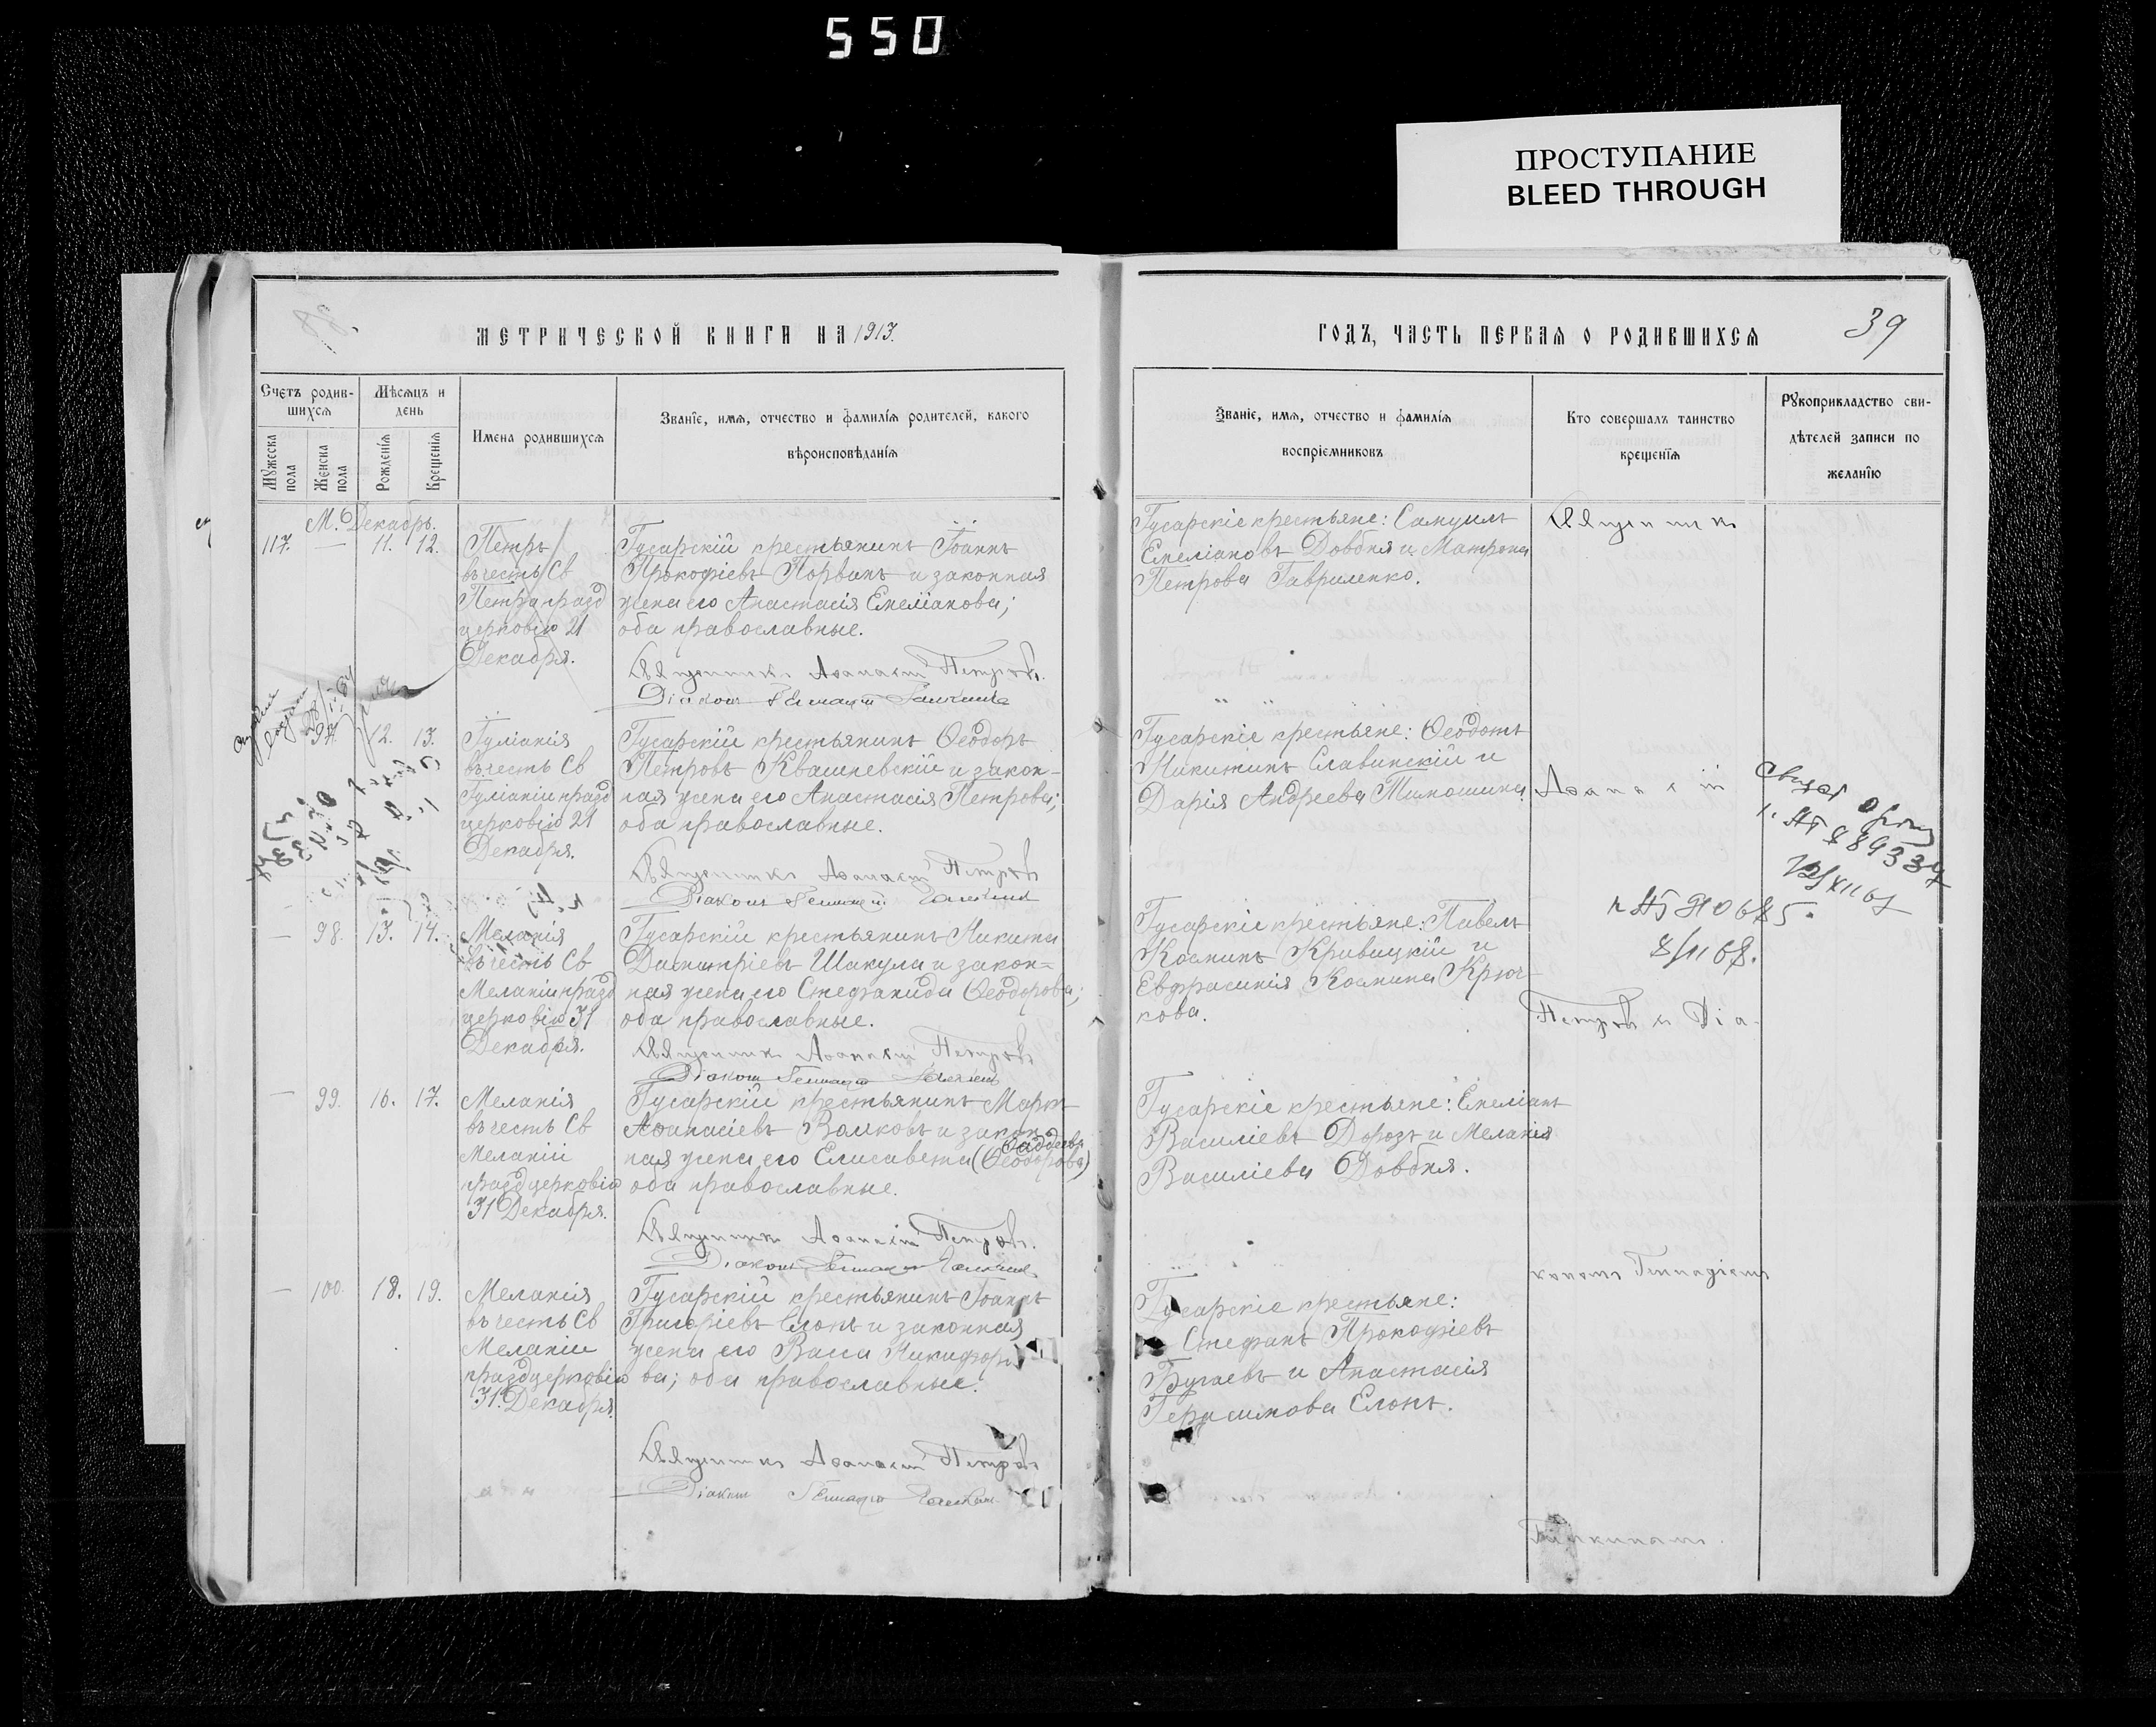 550
ПРОСТУПАНИЕ
BLEED THROUGH
МЕТРИЧЕСКОЙ КНИГИ НА 1913.
ГОДЪ, ЧАСТЬ ПЕРВАЯ О РОДИВШИХСЯ
39
Счетъ родив-
шихся
Мѣсяцъ и
день
Мужеска пола
Женска пола
Рожденія
Крещенія
Имена родившихся
Званіе, имя, отчество и фамилія родителей, какого
вѣроисповѣданія
Званіе, имя, отчество и фамилія
воспріемниковъ
Кто совершалъ таинство
крещенія
Рукоприкладство сви-
дѣтелей записи по
желанію
М. Декабрь.
117. — 11. 12.
Петръ
въ честь Св
Петра празд
церковію 21
Декабря.
Гусарскій крестьянинъ Іоаннъ
Прокофіевъ Порванъ и законная
жена его Анастасія Емеліанова;
оба православные.
Священникъ Аѳанасій Петровъ.
Діаконъ Геннадій
Гусарскіе крестьяне: Самуилъ
Емеліановъ Довбня и Матрона
Петрова Гавриленко.
Священникъ
97. 12. 13.
Іуліанія
въ честь Св
Іуліаніи празд
церковію 21
Декабря.
Гусарскій крестьянинъ Ѳеодоръ
Петровъ Квашневскій и закон-
ная жена его Анастасія Петрова;
оба православные.
Священникъ Аѳанасій Петровъ
Діаконъ Геннадій
Гусарскіе крестьяне: Ѳеодотъ
Никитинъ Славинскій и
Дарія Андреева Тимошина.
Аѳанасій
— 98. 13. 14.
Меланія
въ честь Св
Меланіи празд
церковію 31
Декабря.
Гусарскій крестьянинъ Никита
Димитріевъ Шакула и закон=
ная жена его Стефанида Ѳеодорова;
оба православные.
Священникъ Аѳанасій Петровъ
Діаконъ Геннадій
Гусарскіе крестьяне: Павелъ
Косминъ Кривицкій и
Евфрасинія Космина Крюч-
кова.
8/II 68.
Петровъ и Діа-
— 99. 16. 17.
Меланія
въ честь Св
Меланіи
празд церковію
31 Декабря.
Гусарскій крестьянинъ Маркъ
Аѳанасіевъ Волковъ и закон-
Ѳаддеева
ная жена его Елисавета (Ѳеодорова)
оба православные.
Священникъ Аѳанасій Петровъ.
Діаконъ Геннадій
Гусарскіе крестьяне: Емеліанъ
Василіевъ Дорозъ и Меланія
Василіева Довбня.
кономъ Геннадіемъ
— 100. 18. 19.
Меланія
въ честь Св
Меланіи
празд церковію
31 Декабря.
Гусарскій крестьянинъ Іоаннъ
Григоріевъ Слонъ и законная
жена его Васса Никифоро
ва; оба православные.
Священникъ Аѳанасій Петровъ
Діаконъ Геннадій
Гусарскіе крестьяне:
Стефанъ Прокофіевъ
Бугаевъ и Анастасія
Герасимова Слонъ.